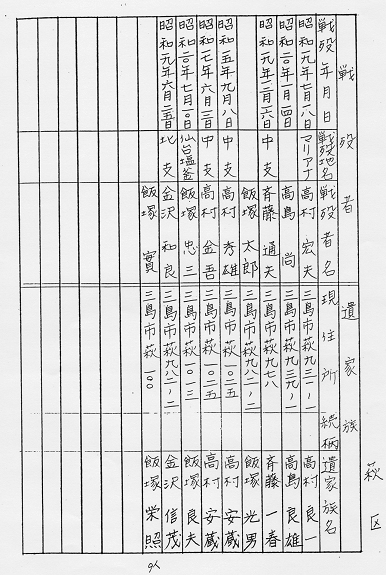 萩区
戦歿者 遺家族
戦歿年月日 戦歿地名 戦歿者名 現住所 続柄 遺家族名
昭和一九年七月一八日 マリアナ 高村宏夫 三島市萩九三一ノ一 高村良一
昭和二〇年一月四日 高島尚 三島市萩九三九ノ一 高島良雄
昭和一九年三月六日 中支 斉藤通夫 三島市萩九七八 斉藤一春
飯塚太郎 三島市萩九八二ノ二 飯塚光男
昭和一五年九月八日 中支 高村秀雄 三島市萩一〇二五 高村安蔵
昭和一七年六月三日 中支 高村金吾 三島市萩一〇二五 高村安蔵
昭和二〇年七月一〇日 仙台塩釜 飯塚忠三 三島市萩一〇一三 飯塚良夫
昭和一九年六月二五日 北支 金沢和良 三島市萩九八二ノ二 金沢信茂
飯塚實 三島市萩一〇〇 飯塚栄照
9人